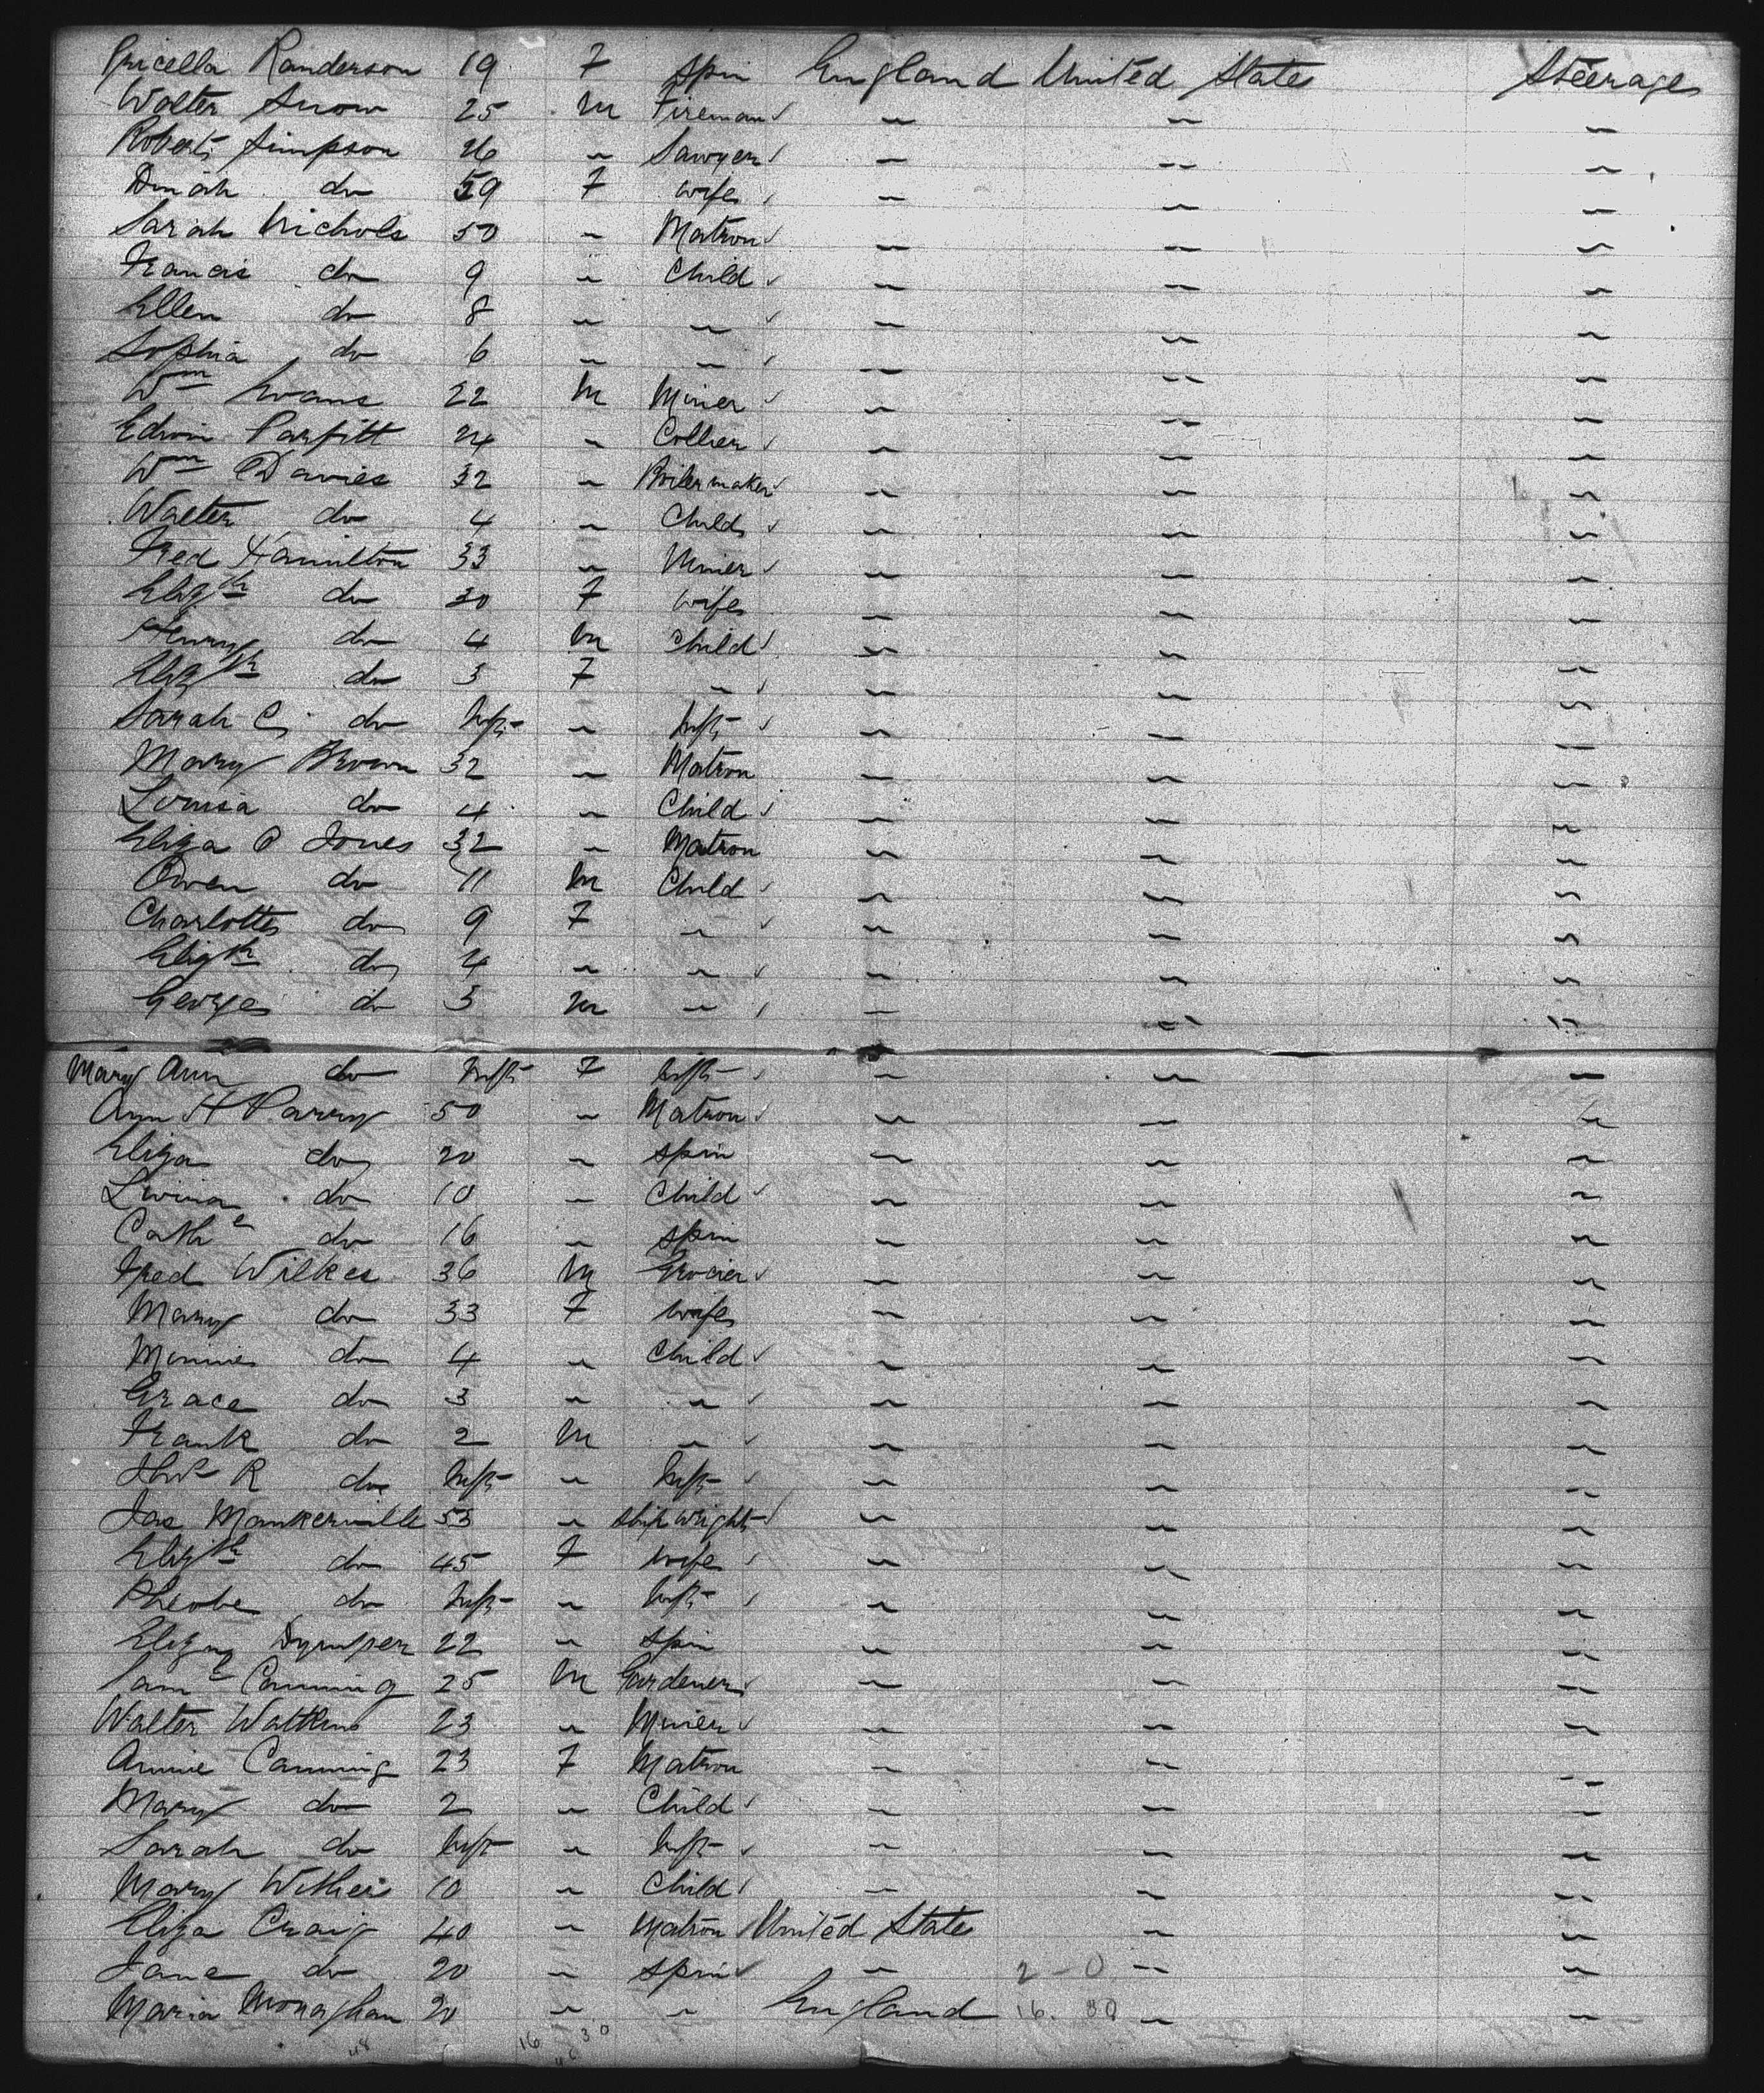 Pricella Randerson 19 F Spin England United State Steerage
Walter Snow 25 M Fireman " " "
Robert Simpson 26 " Sawyer " " "
Dinah do 59 F wife " " "
Sarah Nichols 50 " Matron " " "
Francis do 9 " Child " " "
Ellen do 8 " " " " "
Sophia do 6 " " " " "
Wm Evans 22 M Miner " " "
Edwin Parfitt 24 " Collier " " "
Wm Davies 32 " Boilermaker " " "
Walter do 4 " Child " " "
Fred Hamilton 33 " Miner " " "
Elizth do 30 F wife " " "
Henry do 4 M Child " " "
Elizth do 3 F " " " "
Sarah C do Inft " Inft " " "
Mary Brown 32 " Matron " " "
Louisa do 4 " Child " " "
Eliza P Jones 32 " Matron " " "
Owen do 11 M Child " " "
Charlotte do 9 F " " " "
Elizth do 4 " " " " "
George do 3 M " " " "
Mary Ann do Inft F Inft " " "
Ann H Parry 50 " Matron " " "
Eliza do 20 " Spin " " "
do 10 " Child " " "
Cathe do 16 " Spin " " "
Fred Wilkes 36 M Grocer " " "
Mary do 33 F wife " " "
Minnie do 4 " Child " " "
Grace do 3 " " " " "
Frank do 2 M " " " "
R do Inft " Inft " " "
Jas Mankerville 53 " Shipwright " " "
Elizth do 45 F wife " " "
Pheobe do Inft " Inft " " "
Eliza 22 " Spin " " "
Saml Canning 25 M Gardener " " "
Walter Watkins 23 " Miner " " "
Annie Canning 23 F Matron " " "
Mary do 2 " Child " " "
Sarah do Inft " Inft " " "
Mary 10 " Child " " "
Eliza Craig 40 " Matron United State " "
Jane do 20 " Spin " 2-0 " "
Maria Monaghan 20 " " England 16. 30 " "
48 16 30